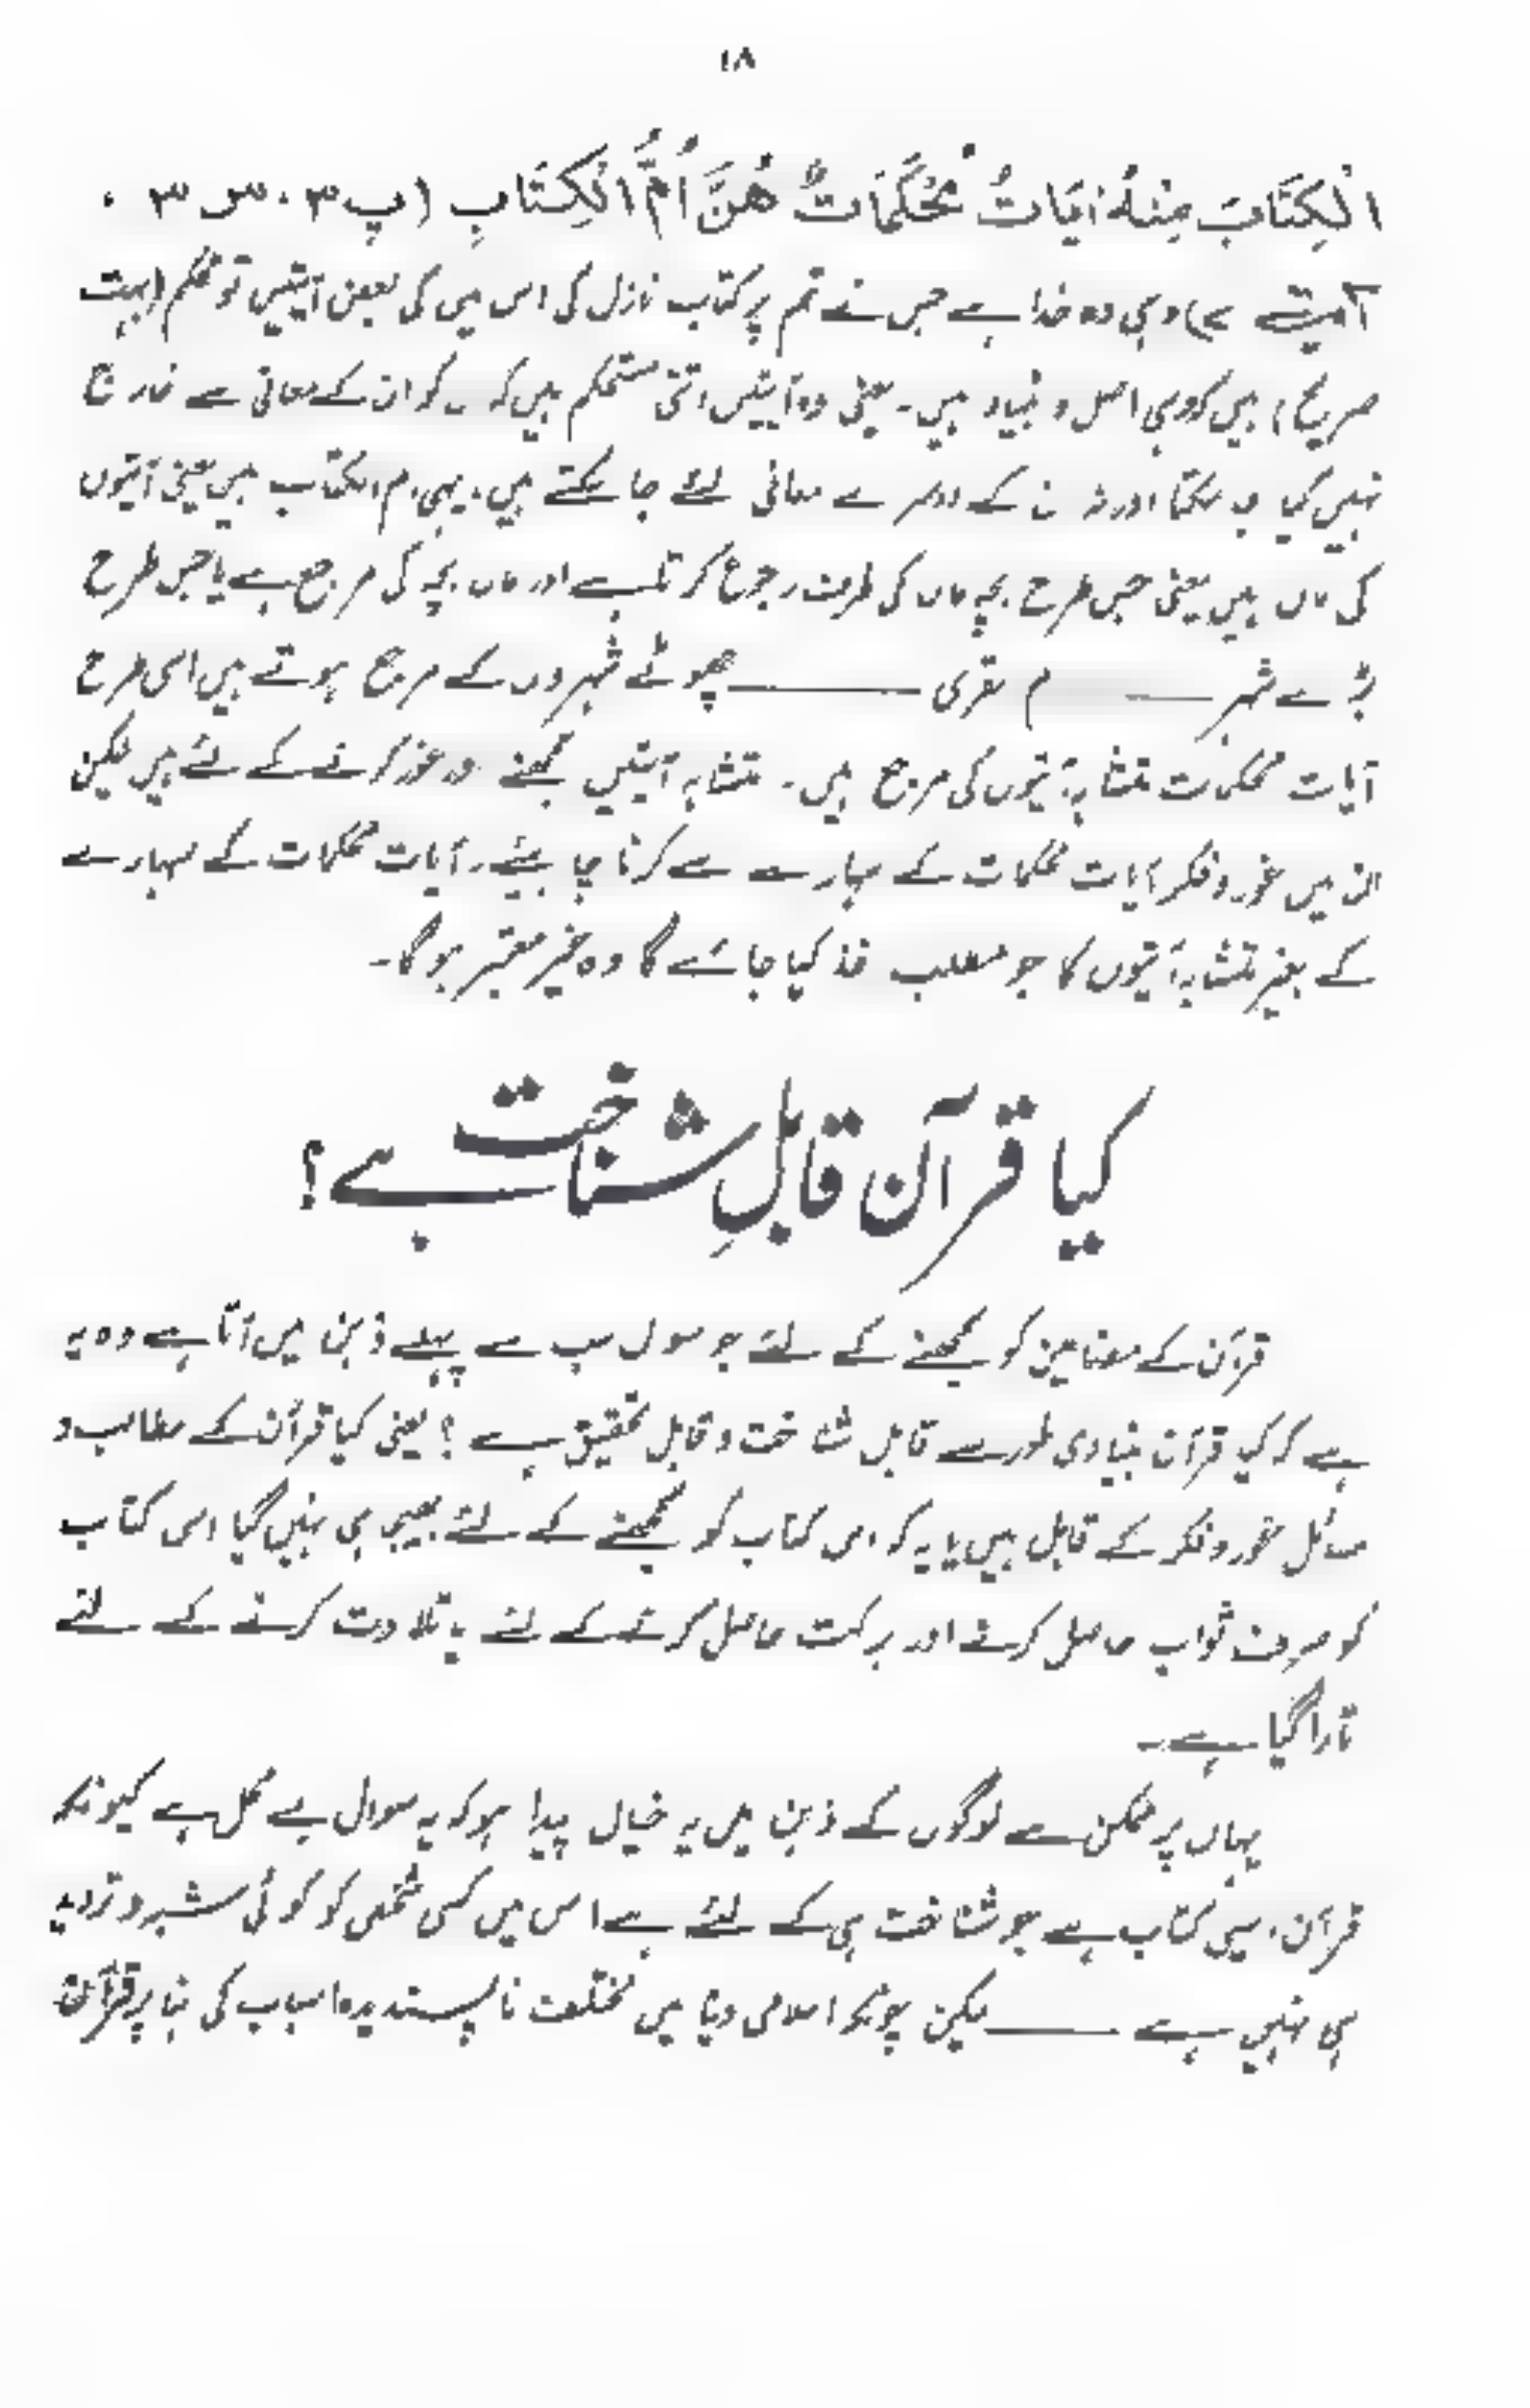 ١٨
الْكِتَابَ مِنْهُ اٰيَاتٌ مُحْكَمَاتٌ هُنَّ اُمُّ الْكِتَابِ (پ ٣، س ٣،
آیت ے) وہی وہ خدا ہے جس نے تم پر کتاب نازل کی اس میں کی بعض آیتیں تو محکم (بہت
صریح) ہیں کہ وہی اصل و بنیاد ہیں۔ یعنی وہ آیتیں اتنی مستحکم ہیں کہ ان کو ان کے معانی سے خارج
نہیں کیا جا سکتا اور نہ ان کے دوسرے معانی لئے جا سکتے ہیں، یہی ام الکتاب ہیں یعنی آیتوں
کی ماں ہیں یعنی جس طرح بچہ ماں کی طرف رجوع کرتا ہے اور ماں بچہ کی مرجع ہے یا جس طرح
بڑے شہر —— ام القری —— چھوٹے شہروں کے مرجع ہوتے ہیں اسی طرح
آیات محکمات متشابہ آیتوں کی مرجع ہیں۔ متشابہ آیتیں سمجھنے اور غور کرنے کے لئے ہیں لیکن
ان میں غور و فکر آیات محکمات کے سہارے سے کرنا چاہیئے، آیات محکمات کے سہارے
کے بغیر متشابہ آیتوں کا جو مطلب اخذ کیا جائے گا وہ غیر معتبر ہو گا۔
کیا قرآن قابلِ شناخت ہے؟
قرآن کے مضامین کو سمجھنے کے لئے جو سوال سب سے پہلے ذہن میں آتا ہے وہ یہ
ہے کہ کیا قرآن بنیادی طور سے قابل شناخت و قابل تحقیق ہے؟ یعنی کیا قرآن کے مطالب و
مسائل غور و فکر کے قابل ہیں یا یہ کہ اس کتاب کو سمجھنے کے لئے بھیجا ہی نہیں گیا اس کتاب
کو صرف ثواب حاصل کرنے اور برکت حاصل کرنے کے لئے یا تلاوت کرنے کے لئے
اتارا گیا ہے۔
یہاں پر ممکن ہے لوگوں کے ذہن میں یہ خیال پیدا ہو کہ یہ سوال بے محل ہے کیونکہ
قرآن ایسی کتاب ہے جو شناخت ہی کے لئے ہے اس میں کسی شخص کو کوئی شبہ و تردید
ہی نہیں ہے —— لیکن چونکہ اسلامی دنیا میں مختلف ناپسندیدہ اسباب کی بنا پر قرآن